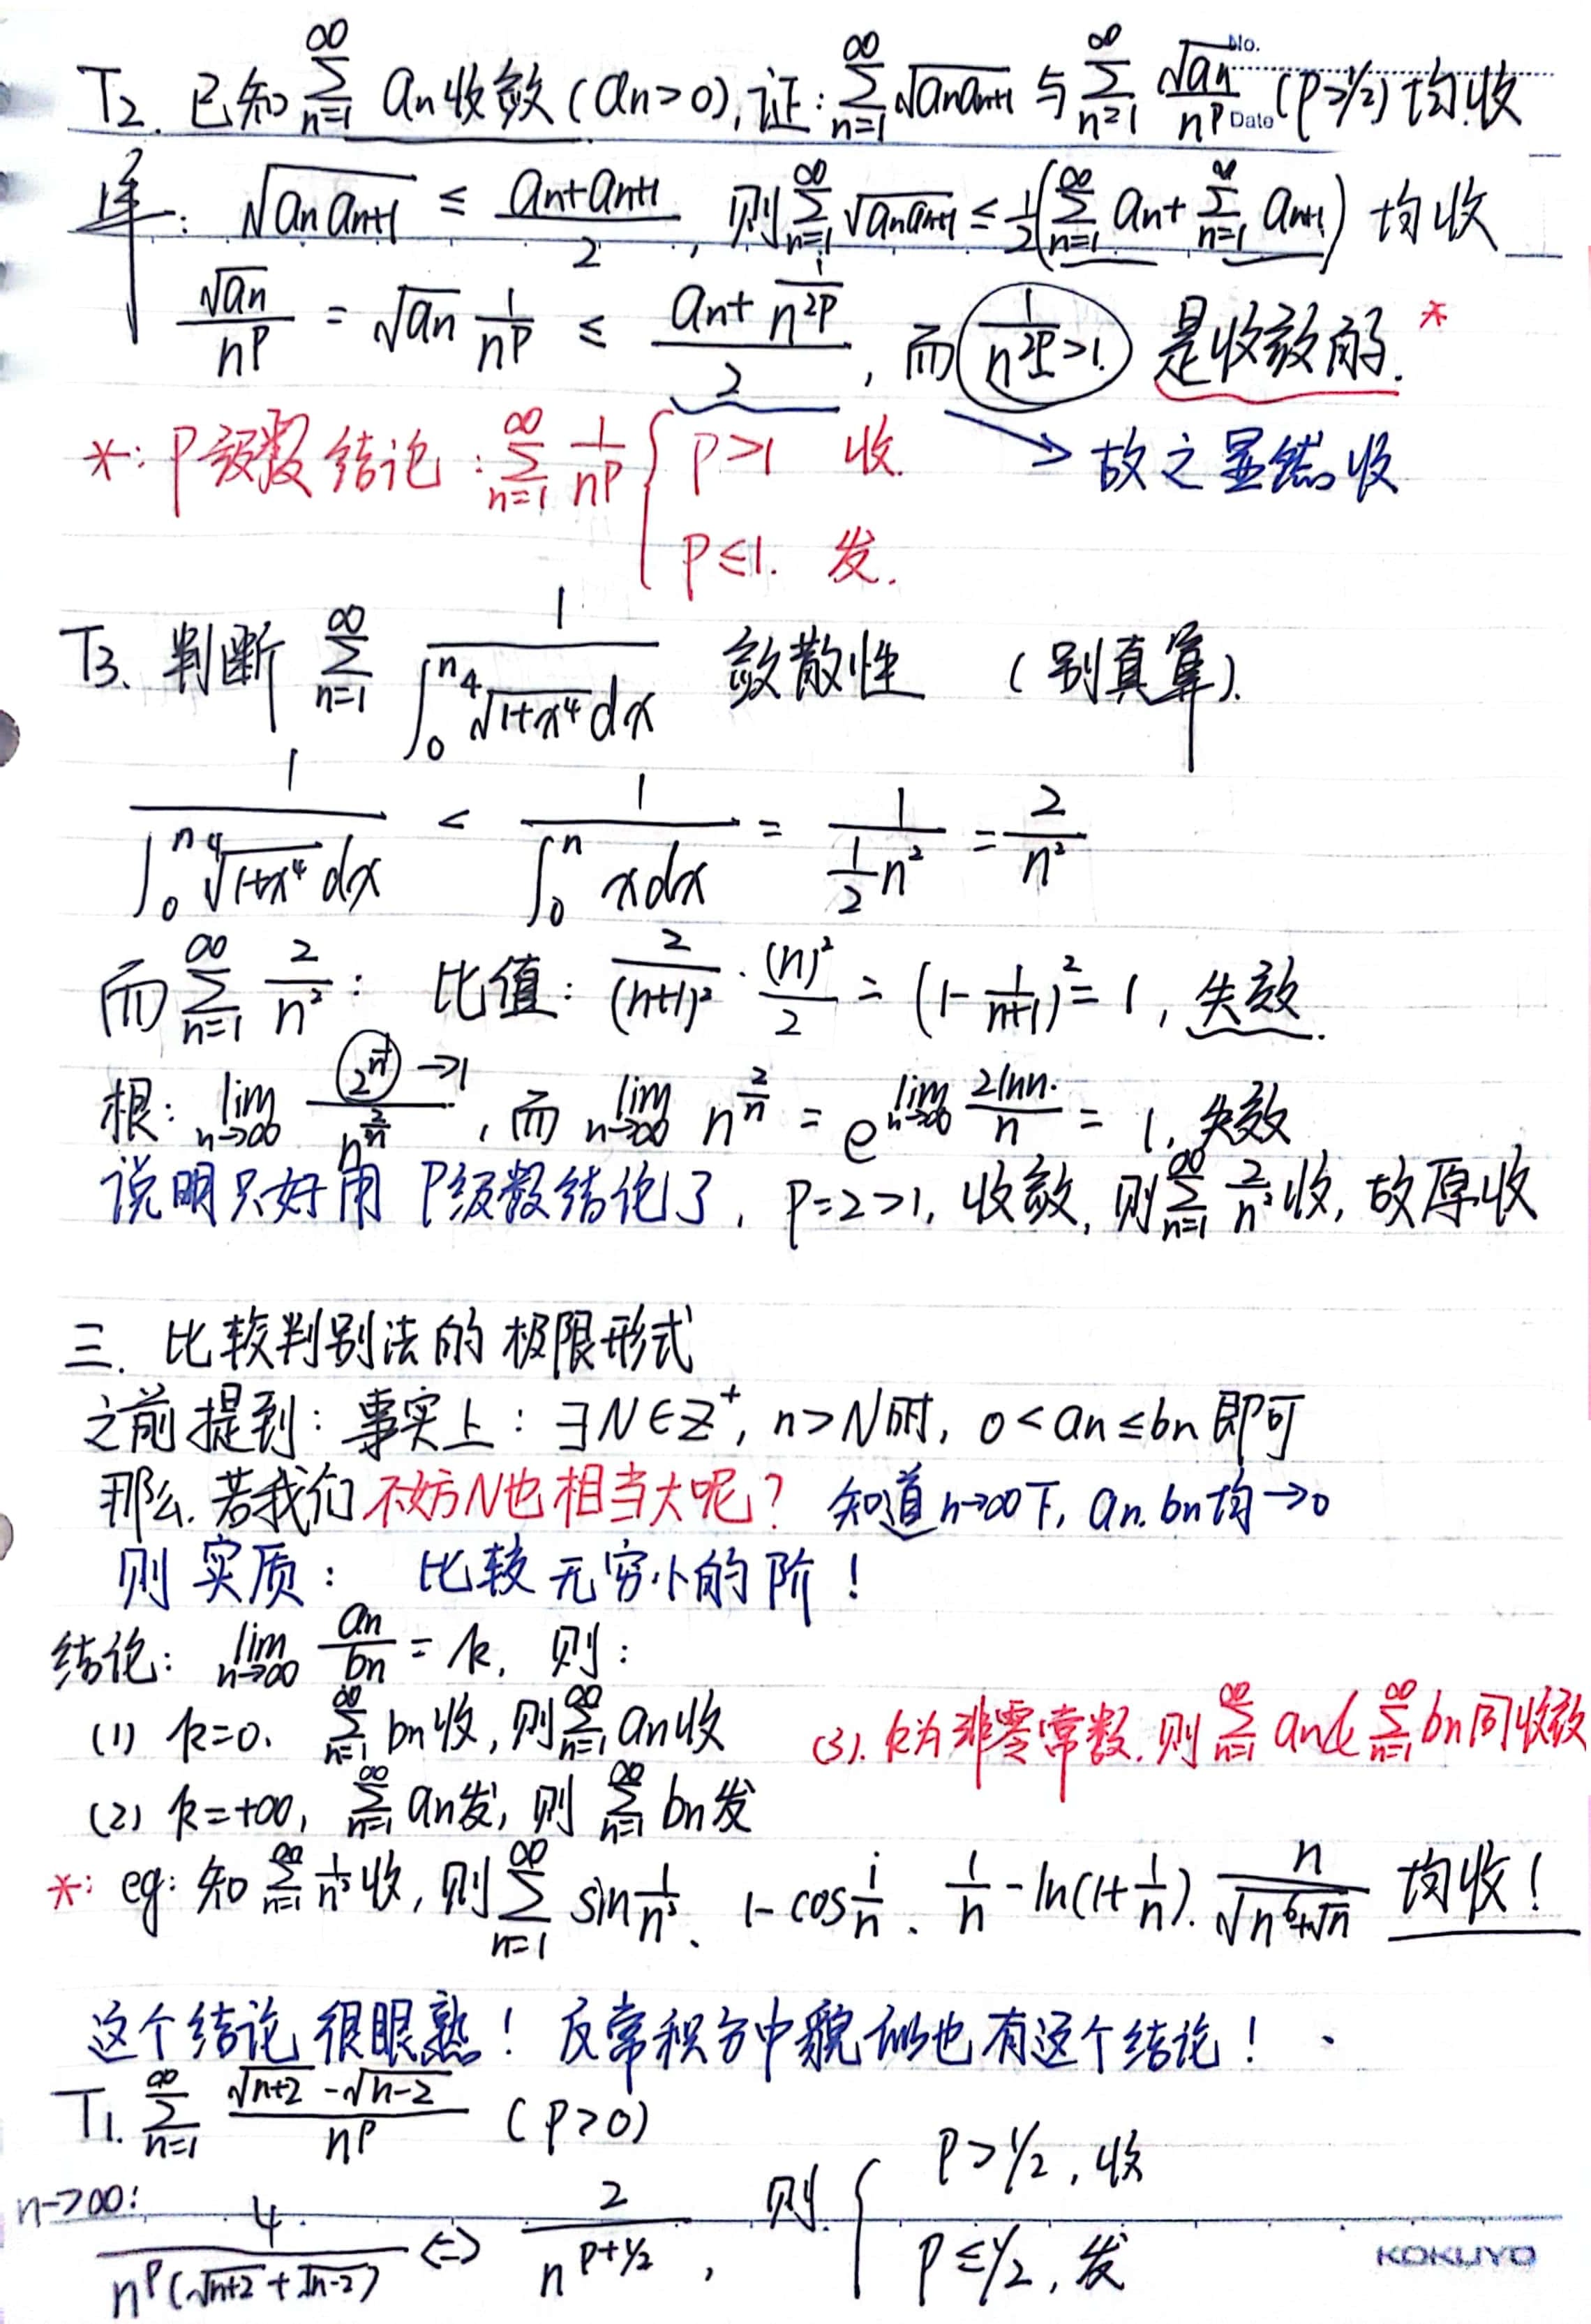 No.
Date
T2. 已知 ∑_{n=1}^{∞} an 收敛 (an>0), 证: ∑_{n=1}^{∞} √(an an+1) 与 ∑_{n=1}^{∞} √an / n^p (p>1/2) 均收
证: √(an an+1) ≤ (an+an+1)/2, 则 ∑_{n=1}^{∞} √(an an+1) ≤ 1/2(∑_{n=1}^{∞} an + ∑_{n=1}^{∞} an+1) 均收
√an / n^p = √an · 1/n^p ≤ (an + 1/n^{2p})/2, 而 1/n^{2p>1} 是收敛的. *
*: P级数结论: ∑_{n=1}^{∞} 1/n^p { p>1 收. → 故之显然收
p≤1. 发.
T3. 判断 ∑_{n=1}^{∞} 1/∫_0^n ⁴√(1+x⁴) dx 敛散性 (别真算).
1/∫_0^n ⁴√(1+x⁴) dx < 1/∫_0^n x dx = 1/(½n²) = 2/n²
而 ∑_{n=1}^{∞} 2/n²: 比值: 2/(n+1)² · (n)²/2 = (1 - 1/(n+1))² = 1, 失效.
根: lim_{n→∞} 2^{1/n}→1 / n^{2/n}, 而 lim_{n→∞} n^{2/n} = e^{lim_{n→∞} 2lnn/n} = 1, 失效
说明只好用 P级数结论了, P=2>1, 收敛, 则 ∑_{n=1}^{∞} 2/n² 收, 故原收
三. 比较判别法的极限形式
之前提到: 事实上: ∃N∈Z⁺, n>N时, 0<an≤bn 即可
那么. 若我们不妨N也相当大呢? 知道n→∞下, an. bn均→0
则实质: 比较无穷小的阶!
结论: lim_{n→∞} an/bn = k, 则:
(1) k=0、 ∑_{n=1}^{∞} bn收, 则 ∑_{n=1}^{∞} an收 (3). k为非零常数. 则 ∑_{n=1}^{∞} an& ∑_{n=1}^{∞} bn同收敛
(2) k=+∞, ∑_{n=1}^{∞} an发, 则 ∑_{n=1}^{∞} bn发
*: eg: 知 ∑_{n=1}^{∞} 1/n² 收, 则 ∑_{n=1}^{∞} sin 1/n²、 1-cos 1/n、 1/n - ln(1+1/n). n/√(n⁶+√n) 均收!
这个结论很眼熟! 反常积分中貌似也有这个结论!
T1. ∑_{n=1}^{∞} (√(n+2) - √(n-2))/n^p (p>0)
n→∞: 4/(n^p(√(n+2)+√(n-2))) <=> 2/n^{p+1/2}, 则 { P>1/2, 收
P≤1/2, 发
KOKUYO